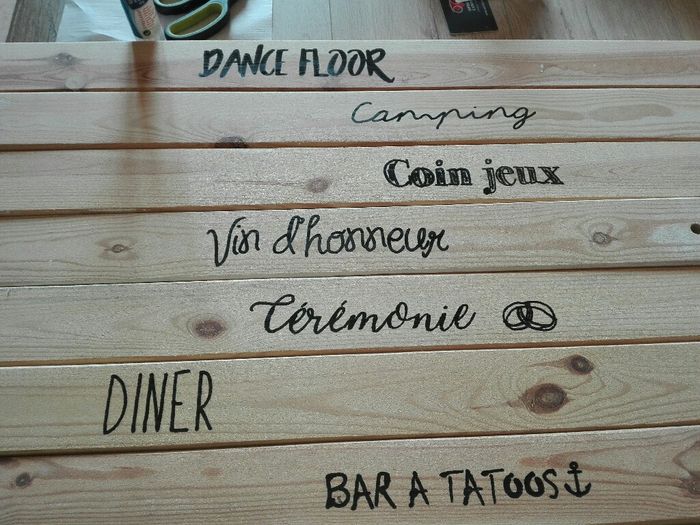 DANCE FLOOR
Camping
Coin jeux
Vin d'honneur
Cérémonie
DINER
BAR A TATOOS